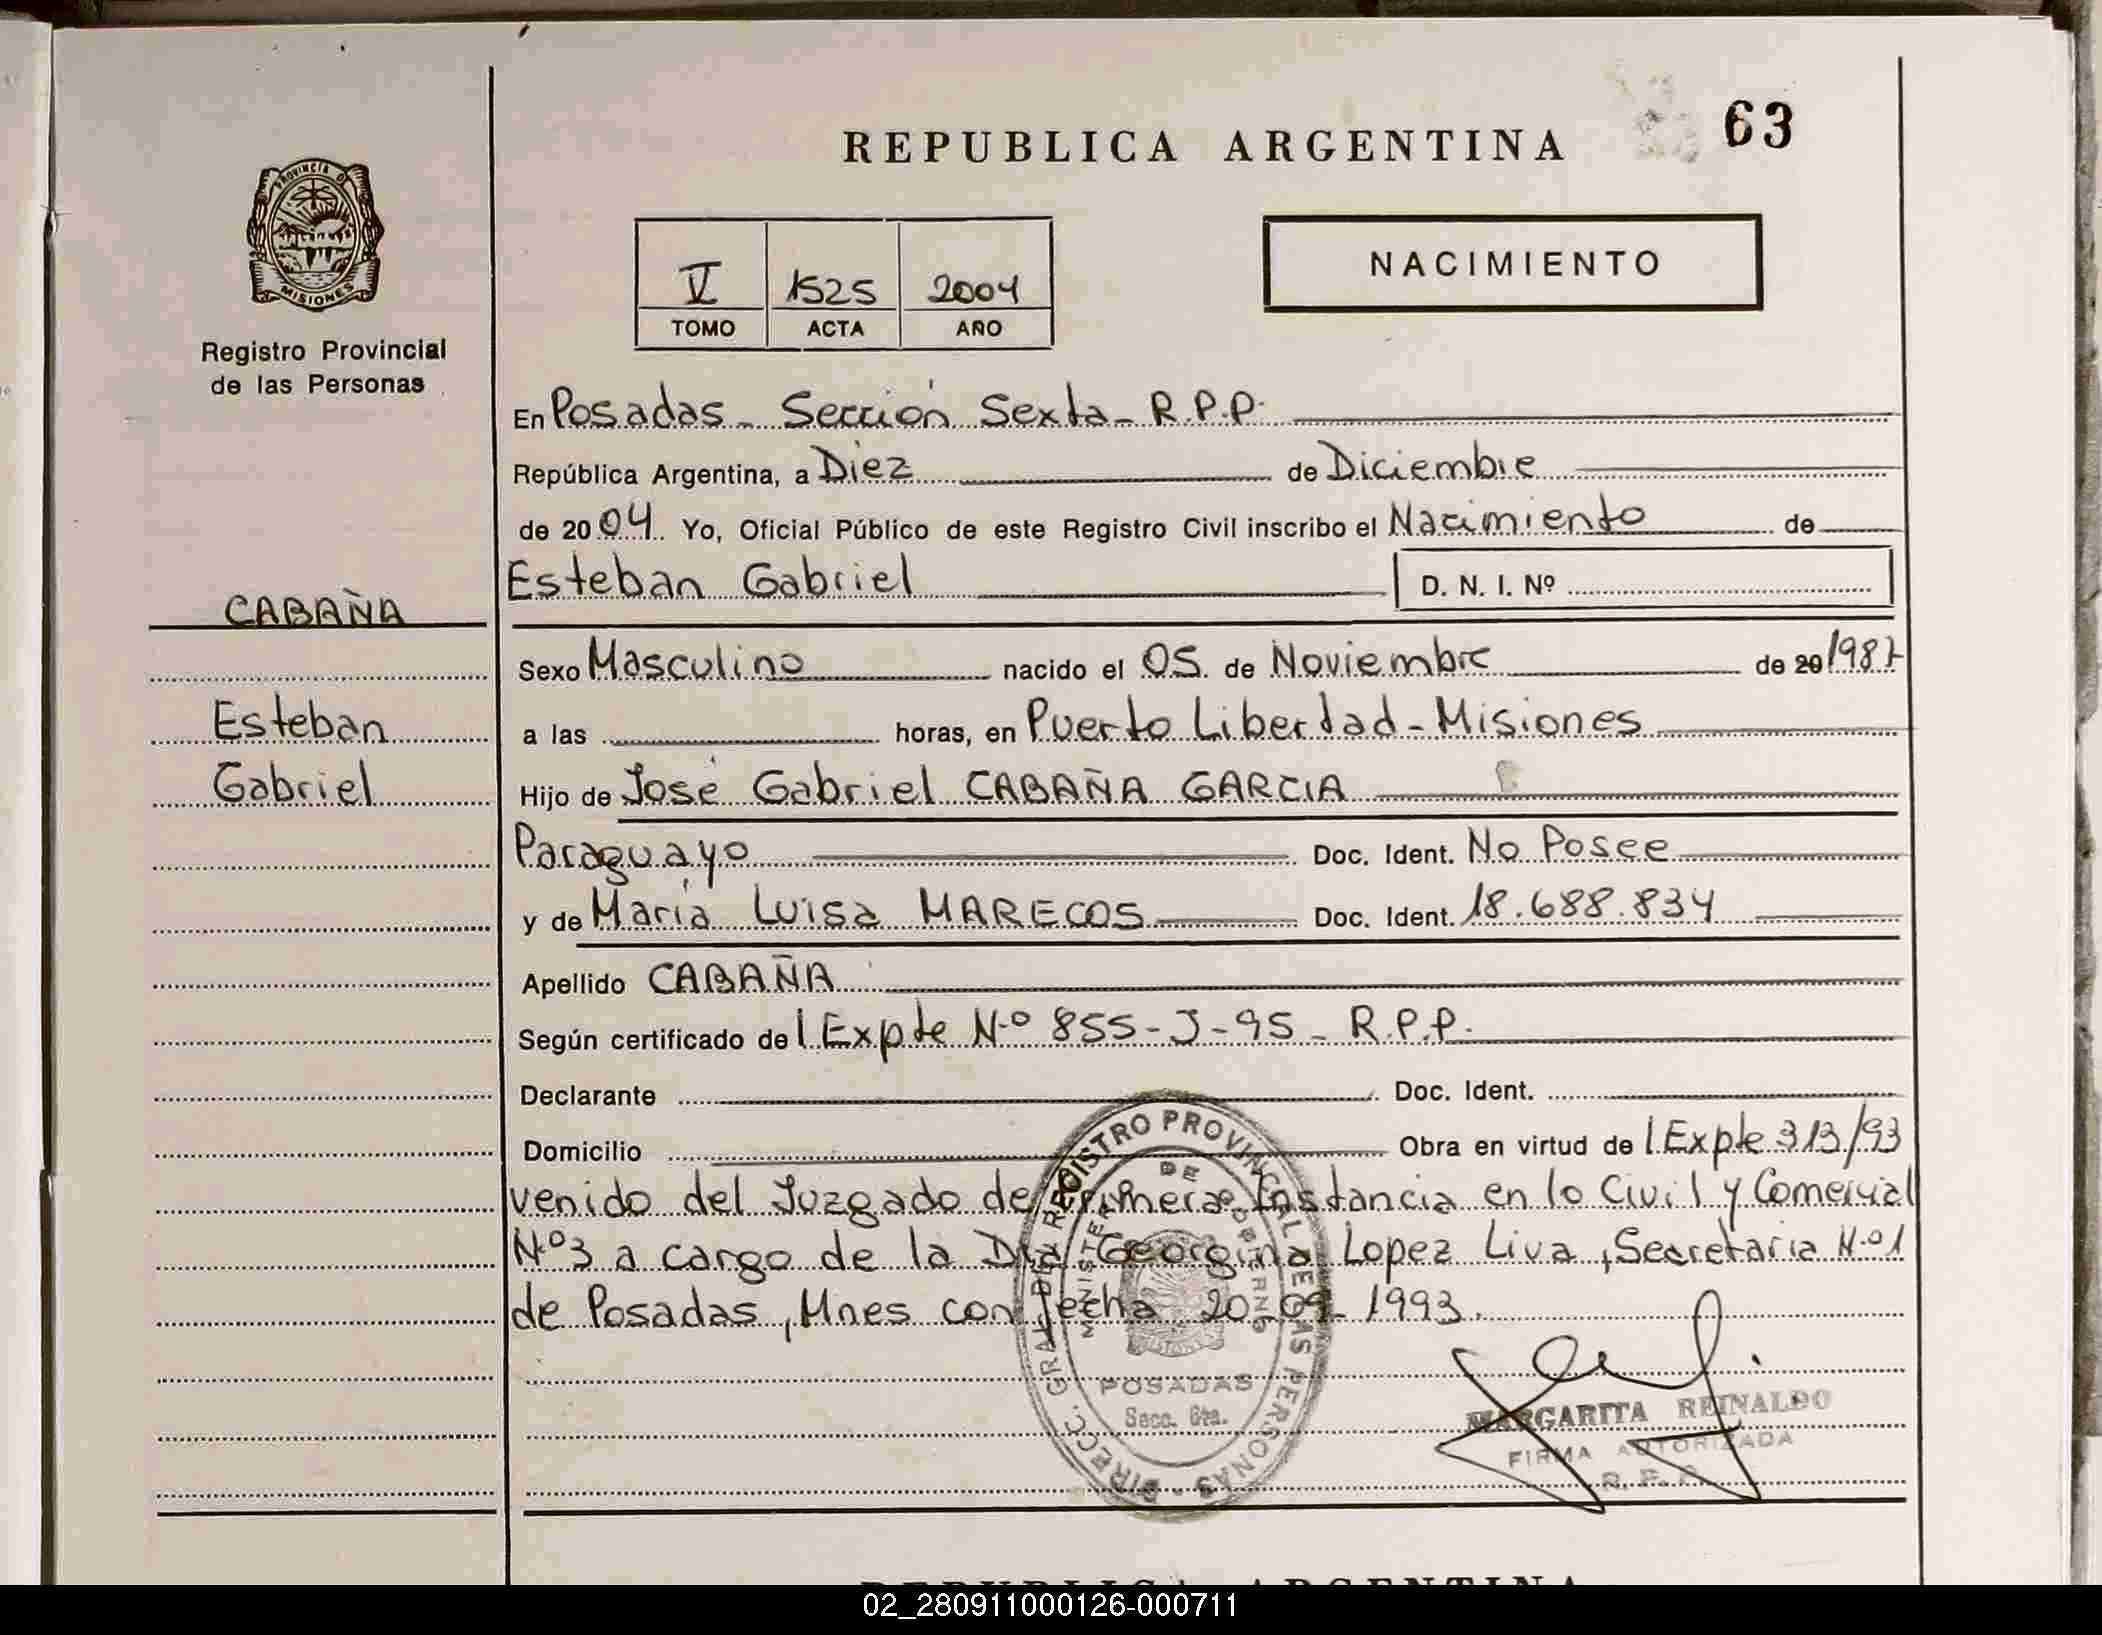 REPUBLICA ARGENTINA
63
PROVINCIA DE
MISIONES
Registro Provincial
de las Personas
V 1525 2004
TOMO ACTA AÑO
NACIMIENTO
En Posadas - Sección Sexta - R.P.P.
República Argentina, a Diez de Diciembre
de 2004. Yo, Oficial Público de este Registro Civil inscribo el Nacimiento de
Esteban Gabriel D. N. I. Nº
CABAÑA
Sexo Masculino nacido el 05 de Noviembre de 20 1987
Esteban
a las horas, en Puerto Libertad - Misiones
Gabriel
Hijo de José Gabriel CABAÑA GARCIA
Paraguayo Doc. Ident. No Posee
y de María Luisa MARECOS Doc. Ident. 18.688.834
Apellido CABAÑA
Según certificado del Expte Nº 855-J-95 - R.P.P.
Declarante Doc. Ident.
Domicilio Obra en virtud del Expte 313/93
venido del Juzgado de Primera Instancia en lo Civil y Comercial
Nº3 a cargo de la Dra Georgina Lopez Liva, Secretaria Nº1
de Posadas, Mnes con fecha 20-09-1993.
DIRECC. GRAL. DEL REGISTRO PROVINCIAL DE LAS PERSONAS
MINISTERIO DE GOBIERNO
POSADAS
Secc. 6ta.
MARGARITA REINALDO
FIRMA AUTORIZADA
R. P. P.
REPUBLICA ARGENTINA
02_280911000126-000711